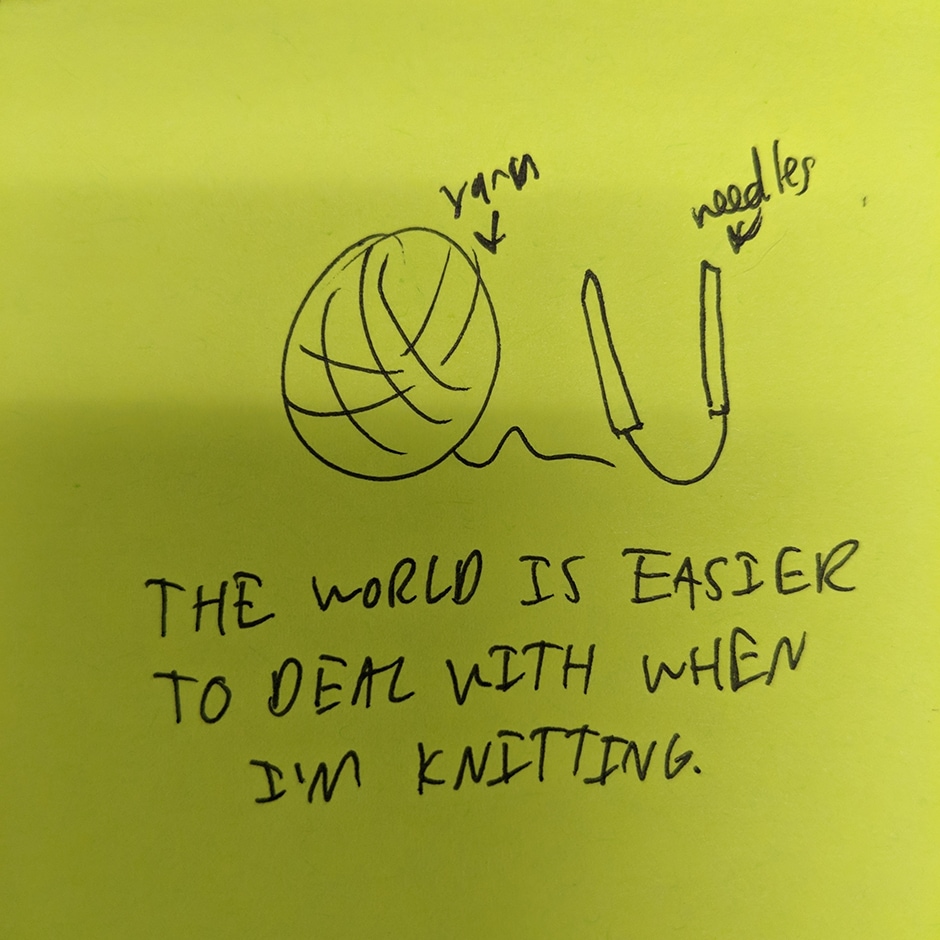 yarn
needles
THE WORLD IS EASIER
TO DEAL WITH WHEN
I'M KNITTING.